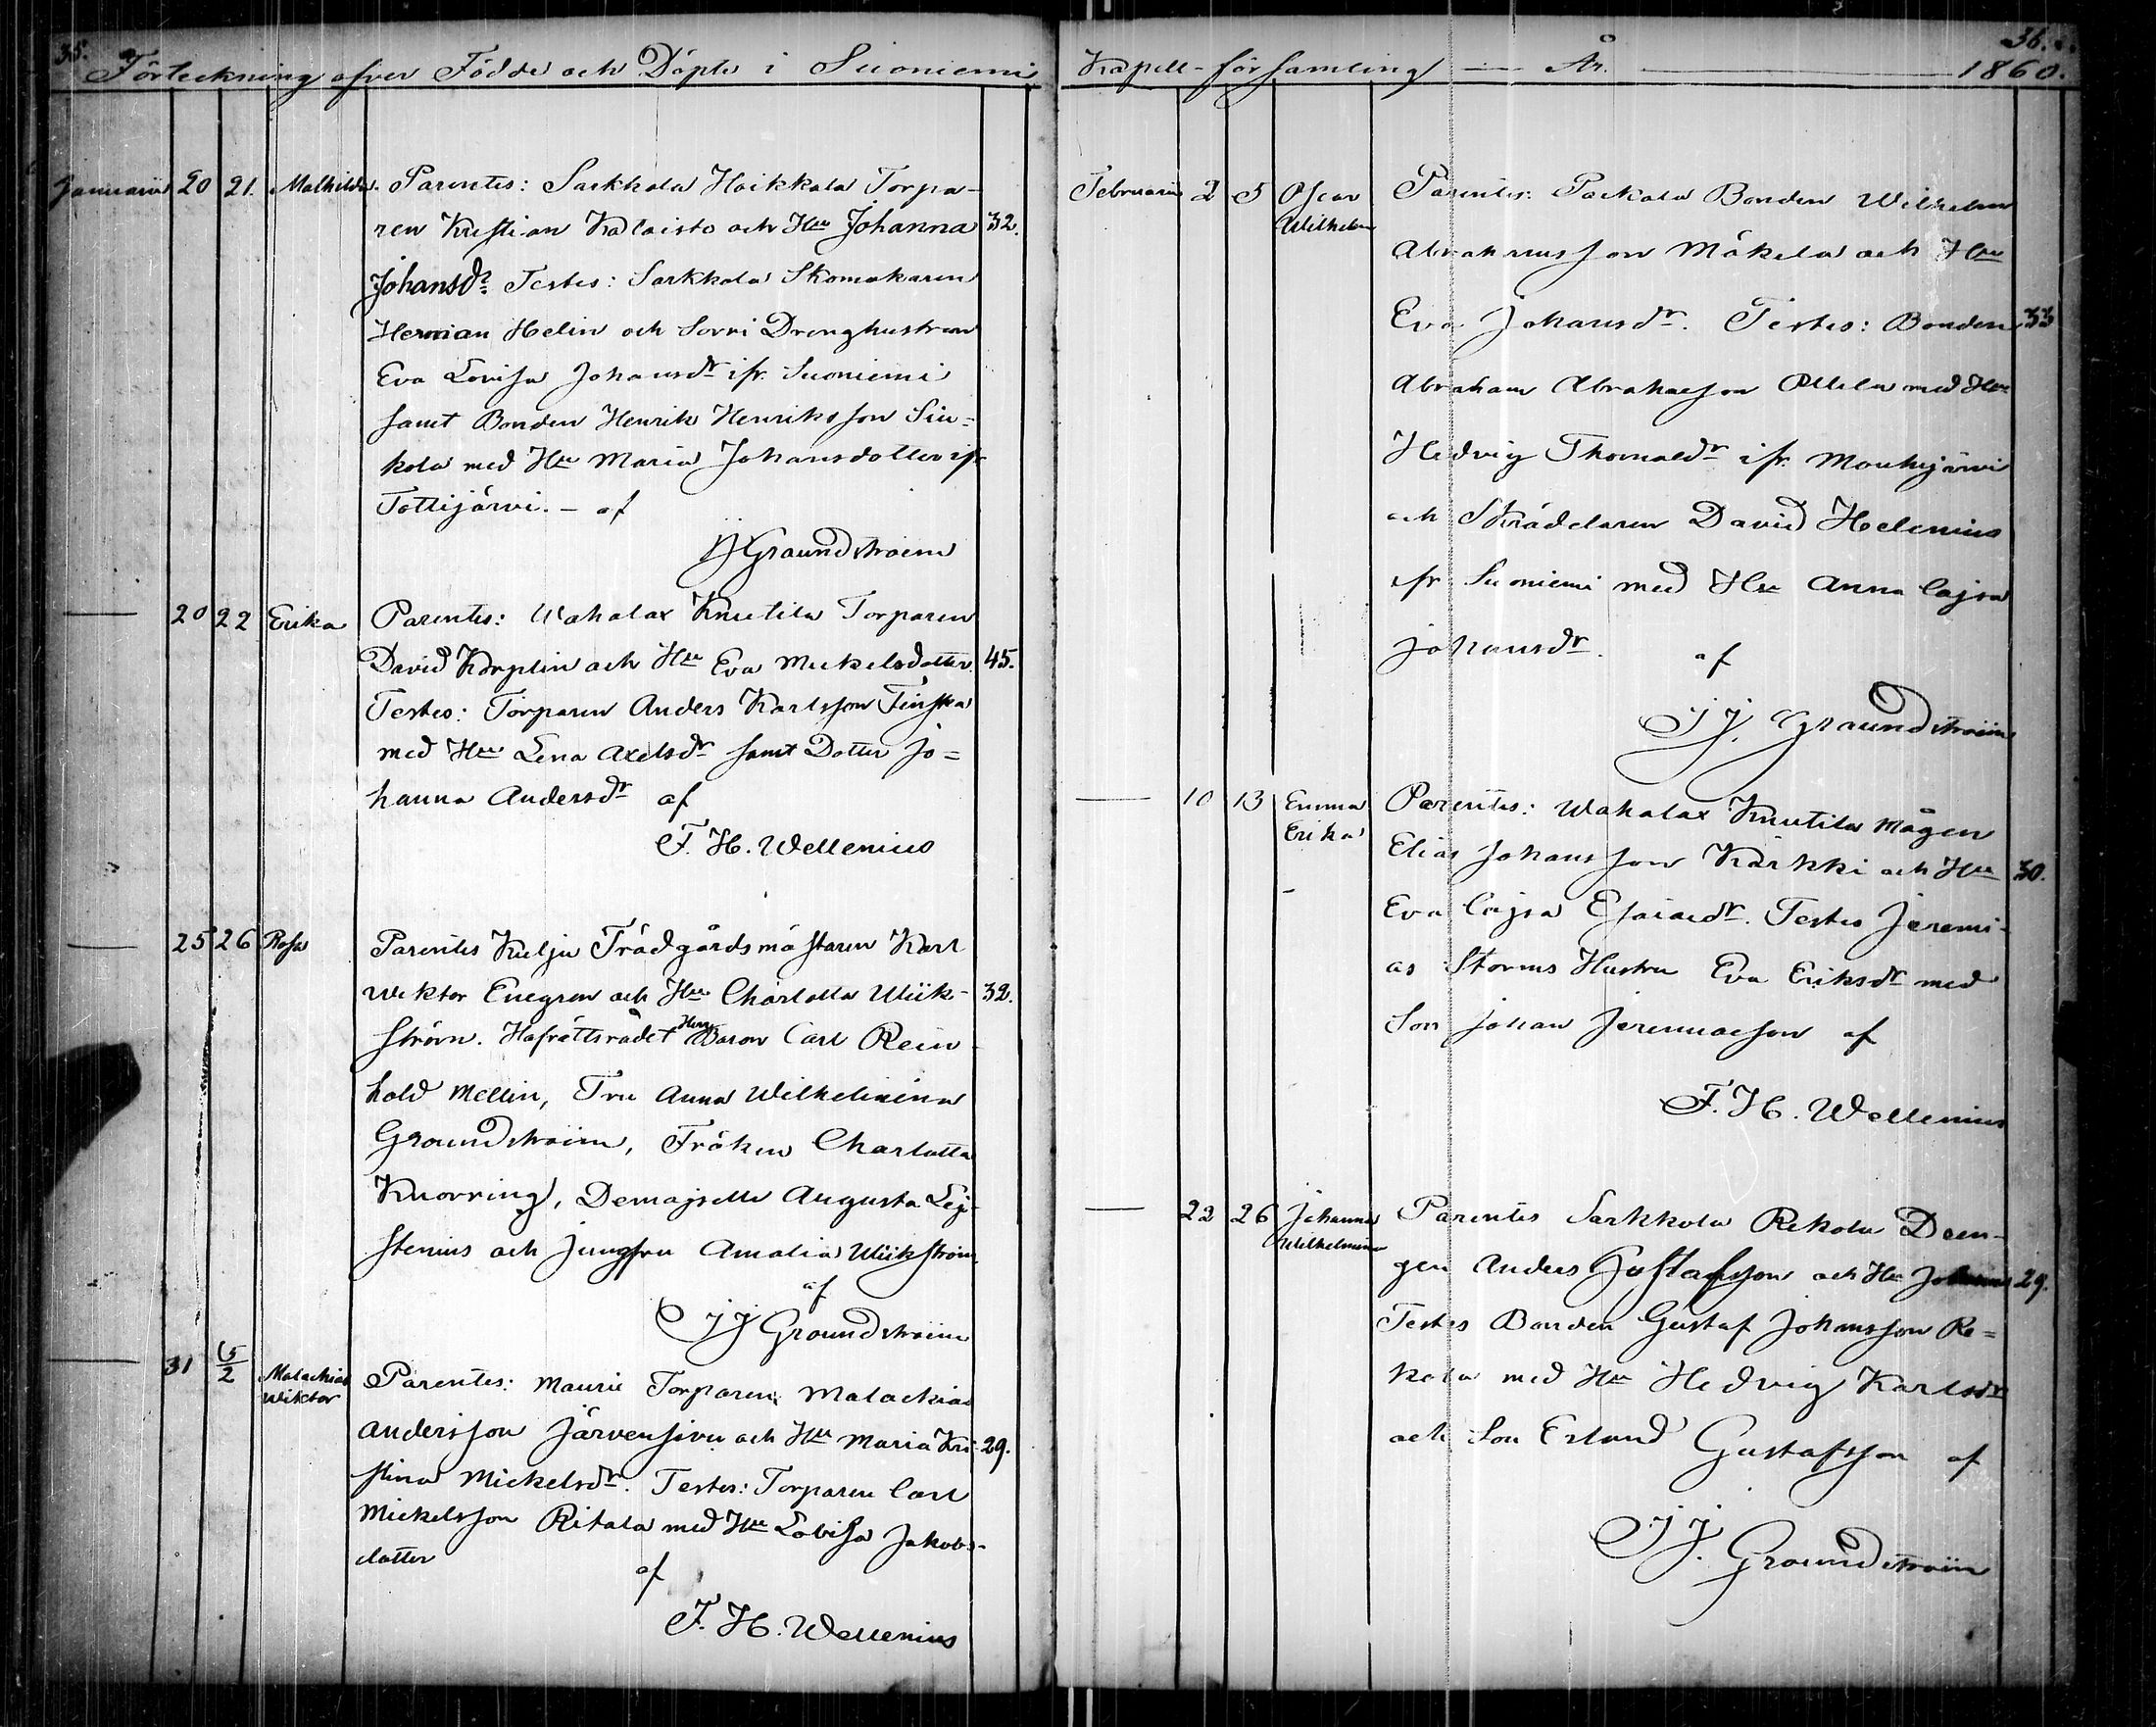 35.
Förteckning öfver Födde och Döpte i Suoniemi
Januarii 20 21. Mathilda. Parentes: Sarkkola Haikkala Torpa-
ren Kristian Kalaisto och Hu Johanna 32.
Johansdr. Testes: Sarkkola Skomakaren
Herman Helin och Sorri Dränghustrun
Eva Lovisa Johansdr ifr. Suoniemi
samt Bonden Henrik Henriksson Siu-
kola med Hu Maria Johansdotter ifr
Tottijärvi. - af
JJ Graundstroem
20 22 Erika Parentes: Wahalax Knutila Torparen
David Korplin och Hu Eva Mickelsdotter. 45.
Testes: Torparen Anders Karlsson Finska
med Hu Lena Axelsdr samt Dotter Jo-
hanna Andersdr af
F. H. Wellenius
25 26 Rosa Parentes Kulju Trädgårdsmästaren Karl
Wiktor Enegren och Hu Charlotta Wiik- 32.
ström. Hofrättsrådet Herr Baron Carl Rein-
hold Mellin, Fru Anna Wilhelmina
Graundstroem, Fröken Charlotta
Knorring, Demoiselle Augusta Lej-
stenius och Jungfru Amalia Wiikström
af
JJ Graundstroem
31 5/2 Malachias Wiktor Parentes: Mauri Torparen Malachias
Andersson Järvensivu och Hu Maria Kri- 29.
stina Mickelsdr. Testes: Torparen Carl
Mickelsson Ritala med Hu Lovisa Jakobs-
dotter
af
F. H. Wellenius
36.
Kapell-församling År. 1860.
Februarii 2 5 Oscar Wilhelm Parentes: Pakkala Bonden Wilhelm
Abrahamsson Mäkelä och Hu
Eva Johansdr. Testes: Bonden 33
Abraham Abrahasson Ollila med Hu
Hedvig Thomasdr ifr. Mouhijärvi
och Skräddaren David Helenius
ifr Suoniemi med Hu Anna Cajsa
Johansdr. af
JJ. Graundstroem
10 13 Emma Erika Parentes: Wahalax Knutila Mågen
Elias Johansson Kärkki och Hu 30.
Eva Cajsa Esaiaedr. Testes Jeremi-
as Storms Hustru Eva Eriksdr med
Son Johan Jeremiasson af
F. H. Wellenius
22 26 Johanna Wilhelmina Parentes Sarkkola Rekola Dren-
gen Anders Gustafsson och Hu Johanna 29.
Testes Bonden Gustaf Johansson Re-
kola med Hu Hedvig Karlsdr
och Son Erland Gustafsson af
JJ. Graundstroem